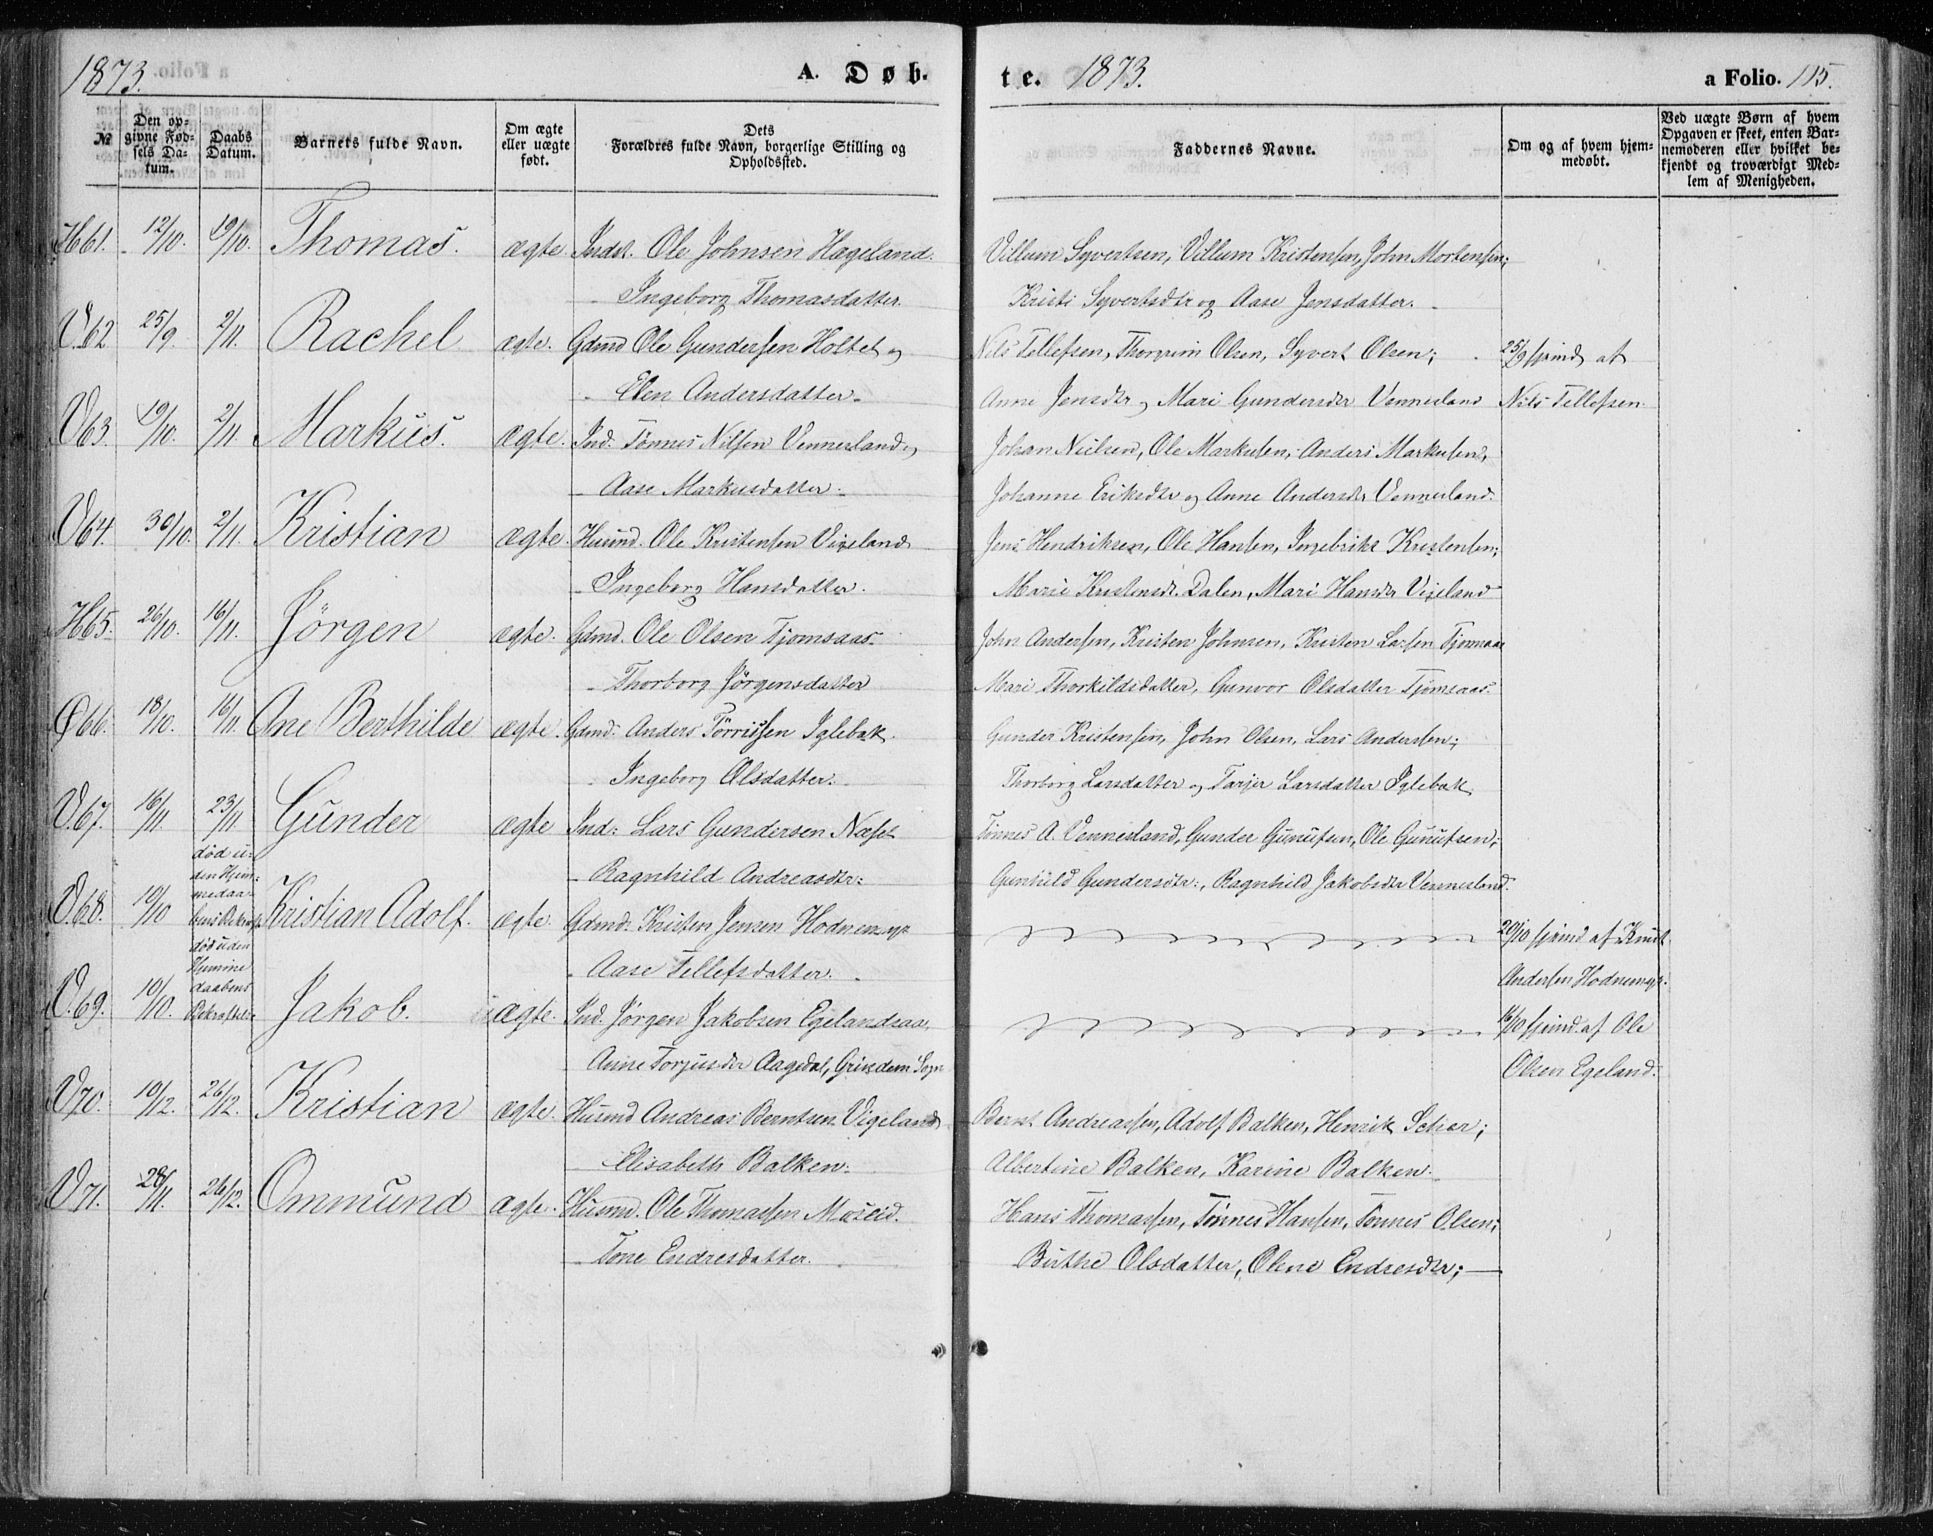 1873. A. Døb-
te. 1873. a Folio. 115.
№ Den opgivne Fødsels Datum. Daabs Datum. Barnets fulde Navn. Om ægte eller uægte født. Dets Forældres fulde Navn, borgerlige Stilling og Opholdssted. Faddernes Navne. Om og af hvem hjemmedøbt. Ved uægte Børn af hvem Opgaven er skeet, enten Barnemoderen eller hvilket bekjendt og troværdigt Medlem af Menigheden.
H61. 12/10. 19/10. Thomas. ægte. Indst. Ole Johnsen Hageland. Villum Syvertsen, Villum Kristensen, John Mortensen;
Ingeborg Thomasdatter. Kristi Syvertsdtr og Aase Jensdatter.
V62 25/9 2/11. Rachel ægte. Gdmd Ole Gundersen Holtet og Nils Tellefsen, Thorgrim Olsen, Syvert Olsen; 25/9 hjemd. af
Elen Andersdatter. Anne Jensdtr og Mari Gundersdtr Vennerland Nils Tellefsen
V63. 19/10. 2/11. Markus. ægte. Ind. Tønnes Nilsen Vennesland og Johan Nielsen, Ole Markusen, Anders Markusen,
Aase Markusdatter. Johanne Eriksdtr og Anne Andersdtr Vennesland.
V64. 30/10. 2/11. Kristian ægte. Husmd. Ole Kristensen Vigeland Jens Hendriksen, Ole Hansen, Ingebrikt Kristensen;
Ingeborg Hansdatter. Marie Kristensdt. Dalen, Mari Hansdtr Vigeland
H65. 26/10. 16/11. Jörgen ægte. Gdmd. Ole Olsen Tjomsaas. John Andersen, Kristen Johnsen, Kristen Larsen Tjomsaas
Thorborg Jörgensdatter Mari Thorkildsdatter, Gunvor Olsdatter Tjomsaas.
Ø66. 18/10. 16/11 Ane Berthilde ægte. Gdmd. Anders Törrissen Iglebæk. Gunder Kristensen, John Olsen, Lars Andersen;
Ingeborg Olsdatter. Thorborg Larsdatter og Tarjer Larsdatter Iglebæk.
V.67. 16/11. 23/11 Gunder ægte Ind: Lars Gundersen Næset Tønnes A. Vennesland, Gunder Gunufsen, Ole Gunufsen;
Ragnhild Andreasdtr: Gunhild Gundersdtr., Ragnhild Jakobsdtr Vennesland.
V68. 10/10 død uden Hjemmedaabens Bekræft. Kristian Adolf. ægte. Gdmd. Kristen Jensen Hodnemyr 20/10 hjemd af Knut
Aase Tellefsdatter. Andersen Hodnemyr.
V.69. 10/10. død uden Hjemmedaabens Bekræftelse Jakob. ægte. Ind. Jörgen Jakobsen Egelandsaa, 16/10 hjemd. af Ole
Anne Torjusdtr Aagedal, Grindem Sogn Olsen Egeland.
V70. 10/12. 26/12. Kristian ægte. Husmd Andreas Berntsen Vigeland Bernt Andreassen, Adolf Balken, Henrik;
Elisabeth Balken. Albertine Balken, Karine Balken.
V71. 28/11. 26/12. Ommund ægte. Husmd. Ole Thomassen Moseid. Hans Thomassen, Tönnes Hansen, Tönnes Olsen,
Tone Endresdatter. Birthe Olsdatter, Olene Endresdtr;